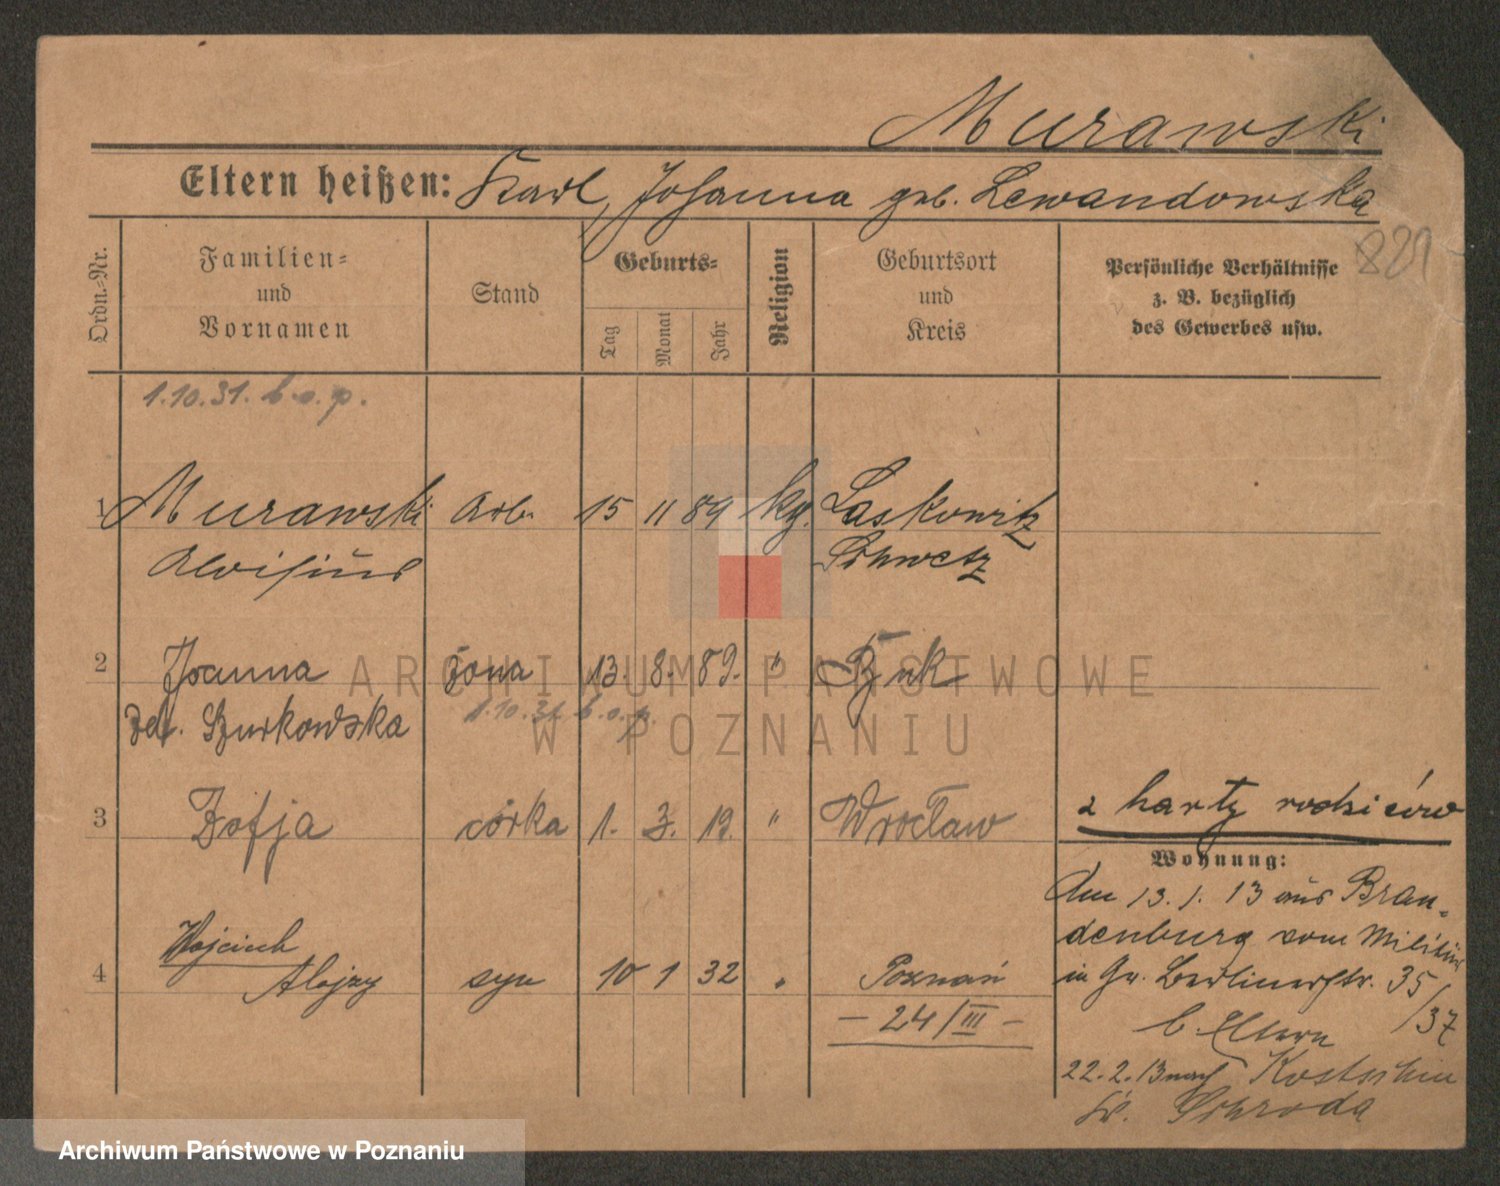 Murawski
Eltern heißen: Karl, Johanna geb. Lewandowska
821
Ordn.-Nr.
Familien-
und
Vornamen
Stand
Geburts-
Tag
Monat
Jahr
Religion
Geburtsort
und
Kreis
Persönliche Verhältnisse
z. B. bezüglich
des Gewerbes usw.
1.10.31. b.o.p.
1 Murawski Arb. 15 11 89 kg. Laskowitz
Aloisius Schwetz
2 Joanna żona 13. 8. 89. "
zd. Szurkowska
1.10.31. b.o.p.
3 Zofja córka 1. 3. 19. " Wrocław
4 Wojciech
Alojzy syn 10 1 32 " Poznań
— 24/III —
2 karty rodziców
Wohnung:
Am 13. 1. 13 aus Bran-
denburg vom Militär
in Gu. Berlinerstr. 35
/37
b. Eltern
22. 2. 13 nach Kostschin
Kr. Schroda
ARCHIWUM PAŃSTWOWE
W POZNANIU
Archiwum Państwowe w Poznaniu